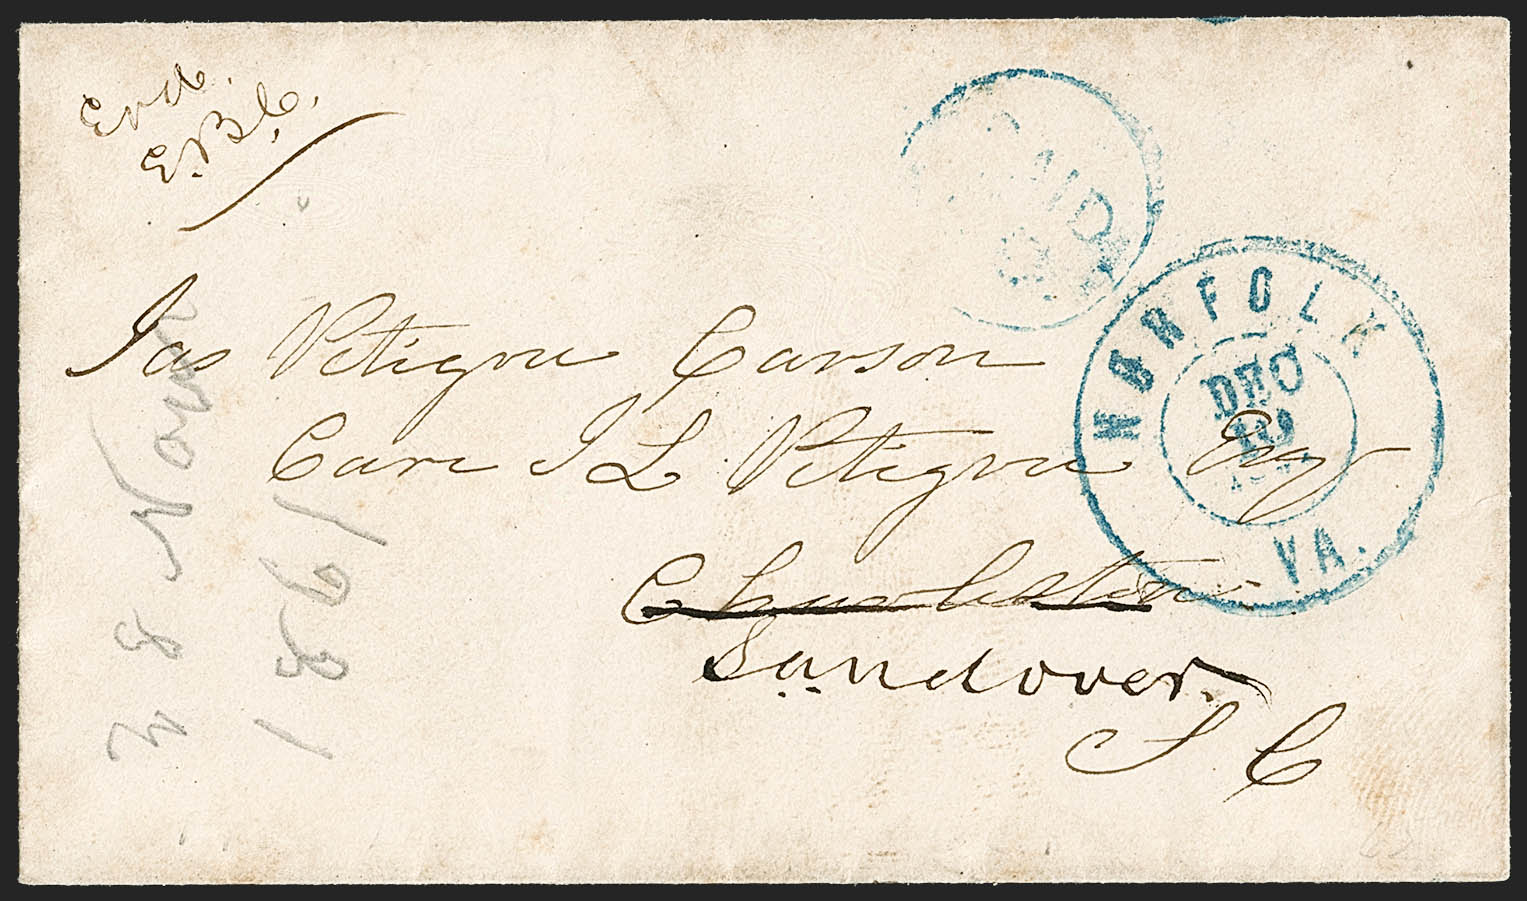 E.B.C.
PAID
NORFOLK
DEC
10
VA.
Jas Petigru Carson
Care J L Petigru Esq
Charleston
Sandover
S C
28 Nov
1861